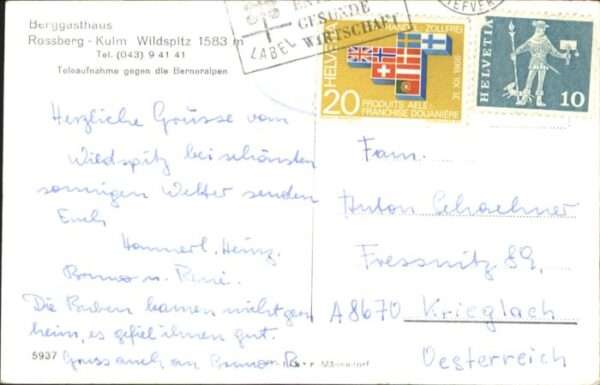 Berggasthaus
Rossberg - Kulm Wildspitz 1583 m
Tel. (043) 9 41 41
Teleaufnahme gegen die Berneralpen
GESUNDE
LABEL WIRTSCHAFT
HELVETIA
ZOLLFREI
31. XII. 1966
20
PRODUITS AELE -
FRANCHISE DOUANIÈRE
HELVETIA
10
Herzliche Grüsse vom
Wildspitz bei schönsten
sonnigen Wetter senden
Euch
Hannerl, Heinz,
Bruno u. René.
Die Buben kamen nicht gern
heim, es gefiel ihnen gut.
Gruss auch an
Fam.
Anton Schachner
Fressnitz 89,
A8670 Krieglach
Oesterreich
5937